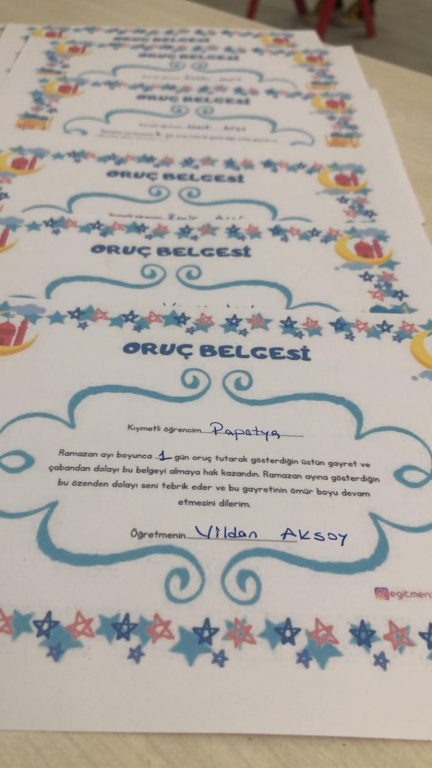 ORUÇ BELGESİ
ORUÇ BELGESİ
ORUÇ BELGESİ
ORUÇ BELGESİ
ORUÇ BELGESİ
Kıymetli öğrencim Papatya
Ramazan ayı boyunca 1 gün oruç tutarak gösterdiğin üstün gayret ve
çabandan dolayı bu belgeyi almaya hak kazandın. Ramazan ayına gösterdiğin
bu özenden dolayı seni tebrik eder ve bu gayretinin ömür boyu devam
etmesini dilerim.
Öğretmenin Vildan AKSOY